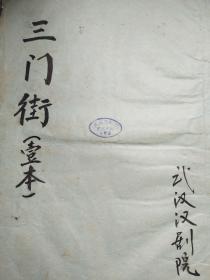 三门街(壹本)
武汉汉剧院